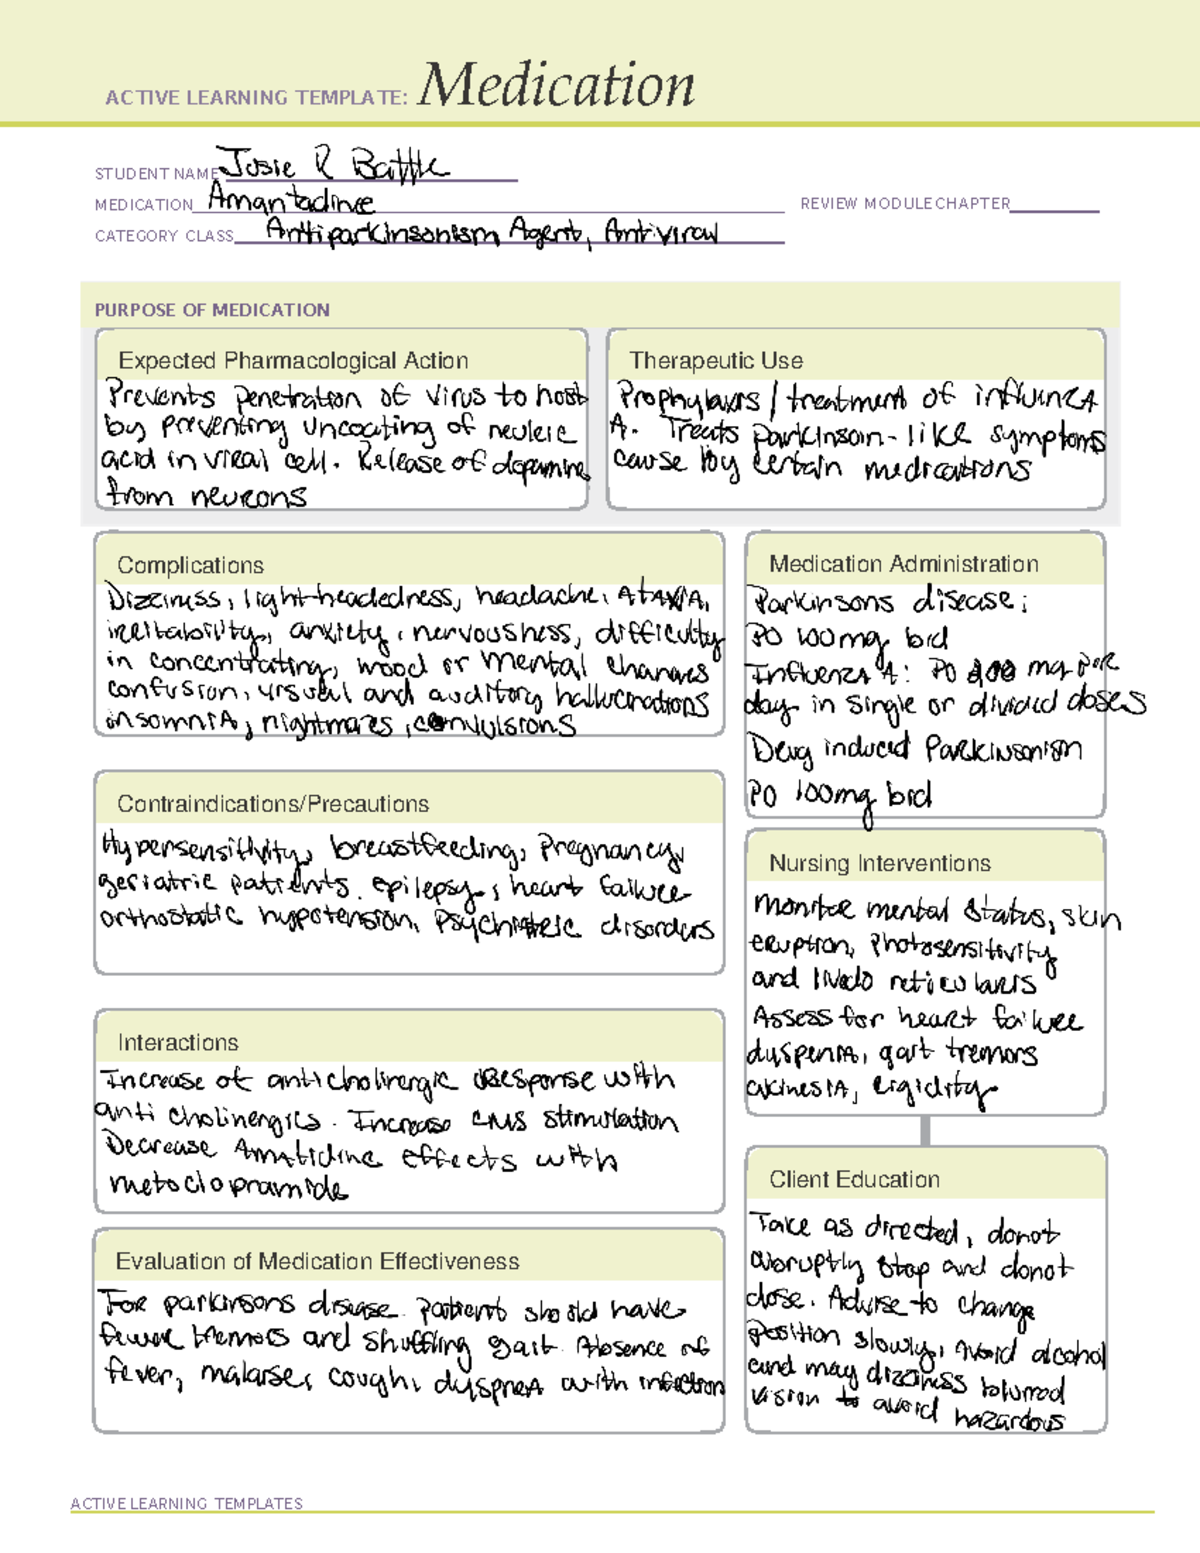 ACTIVE LEARNING TEMPLATE: Medication
STUDENT NAME Josie R Battle
MEDICATION Amantadine
REVIEW MODULE CHAPTER
CATEGORY CLASS Antiparkinsonism Agent, Antiviral
PURPOSE OF MEDICATION
Expected Pharmacological Action
Prevents penetration of virus to host
by preventing uncoating of nucleic
acid in viral cell. Release of dopamine
from neurons
Therapeutic Use
Prophylaxis / treatment of influenza
A. Treats parkinson-like symptoms
cause by certain medications
Complications
Dizziness, light-headedness, headache, Ataxia,
irritability, anxiety, nervousness, difficulty
in concentrating, mood or mental changes
confusion, visual and auditory hallucinations
insomnia, nightmares, convulsions
Medication Administration
Parkinsons disease:
PO 100mg bid
Influenza A: PO 200 mg per
day in single or divided doses
Drug induced Parkinsonism
PO 100mg bid
Contraindications/Precautions
Hypersensitivity, breastfeeding, Pregnancy,
geriatric patients. epilepsy, heart failure
orthostatic hypotension, Psychiatric disorders
Nursing Interventions
Monitor mental status, skin
eruption, Photosensitivity
and livedo reticularis
Assess for heart failure
dyspenia, gait tremors
akinesia, rigidity
Interactions
Increase of anticholinergic Response with
anti cholinergics. Increase CNS stimulation
Decrease Amatidine effects with
metoclopramide
Client Education
Take as directed, donot
abruptly stop and donot
dose. Advise to change
position slowly, avoid alcohol
and may dizziness blurred
vision to avoid hazardous
Evaluation of Medication Effectiveness
For parkinsons disease. Patient should have
fewer tremors and shuffling gait. Absence of
fever, malaise, cough, dyspnea with infection
ACTIVE LEARNING TEMPLATES